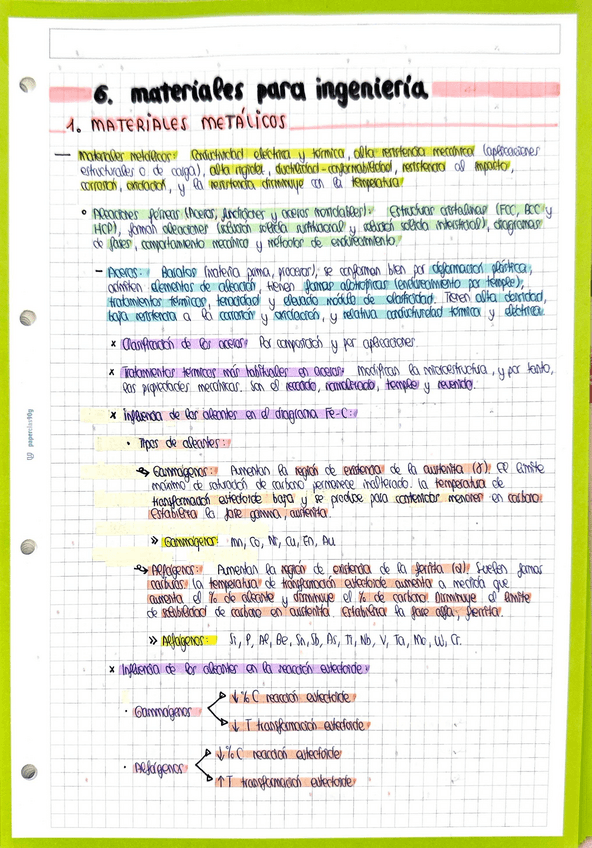 6. materiales para ingeniería
1. MATERIALES METÁLICOS
— Materiales metálicos: Conductividad eléctrica y térmica, alta resistencia mecánica (aplicaciones
estructurales o de carga), alta rigidez, ductilidad-conformabilidad, resistencia al impacto,
corrosión, oxidación, y la resistencia disminuye con la temperatura
° Aleaciones férreas (Aceros, fundiciones y aceros inoxidables): Estructuras cristalinas (FCC, BCC y
HCP), forman aleaciones (solución sólida sustitucional y solución sólida intersticial), diagramas
de fases, comportamiento mecánico y métodos de endurecimiento.
– Aceros: Baratos (materia prima, procesos), se conforman bien por deformación plástica,
admiten elementos de aleación, tienen formas alotrópicas (endurecimiento por temple),
tratamientos térmicos, tenacidad y elevado módulo de elasticidad. Tienen alta densidad,
baja resistencia a la corrosión y oxidación, y relativa conductividad térmica y eléctrica.
x Clasificación de los aceros: Por composición y por aplicaciones.
x Tratamientos térmicos más habituales en aceros: modifican la microestructura, y por tanto,
las propiedades mecánicas. Son el recocido, normalizado, temple y revenido.
x Influencia de los aleantes en el diagrama Fe-C:
· Tipos de aleantes:
↳ Gammágenos: Aumentan la región de existencia de la austenita (γ). El límite
máximo de saturación de carbono permanece inalterado. La temperatura de
transformación eutectoide baja y se produce para contenidos menores en carbono.
Estabiliza la fase gamma, austenita.
» Gammágenos: Mn, Co, Ni, Cu, Zn, Au
↳ Alfágenos: Aumentan la región de existencia de la ferrita (α). Suelen formar
carburos. La temperatura de transformación eutectoide aumenta a medida que
aumenta el % de aleante y disminuye el % de carbono. Disminuye el límite
de solubilidad de carbono en austenita. Estabiliza la fase alfa, ferrita.
» Alfágenos: Si, P, Al, Be, Sn, Sb, As, Ti, Nb, V, Ta, Mo, W, Cr.
x Influencia de los aleantes en la reacción eutectoide:
· Gammágenos
↓ % C reacción eutectoide
↓ T transformación eutectoide
· Alfágenos
↓ % C reacción eutectoide
↑ T transformación eutectoide